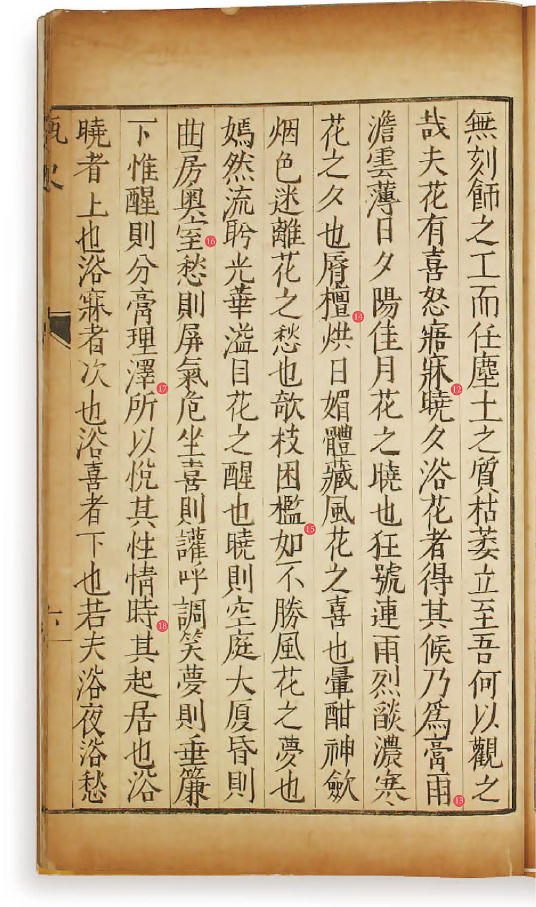 無刻飾之工而任塵土之質枯萎立至吾何以觀之
哉夫花有喜怒寤寐12曉夕浴花者得其候乃爲膏雨13
澹雲薄日夕陽佳月花之曉也狂號連雨烈燄濃寒
花之夕也脣檀14烘日媚體藏風花之喜也暈酣神歛
烟色迷離花之愁也欹枝困檻15如不勝風花之夢也
嫣然流盻光華溢目花之醒也曉則空庭大廈昏則
曲房奥室16愁則屏氣危坐喜則讙呼調笑夢則垂簾
下惟醒則分膏理澤17所以悅其性情時18其起居也浴
曉者上也浴寐者次也浴喜者下也若夫浴夜浴愁